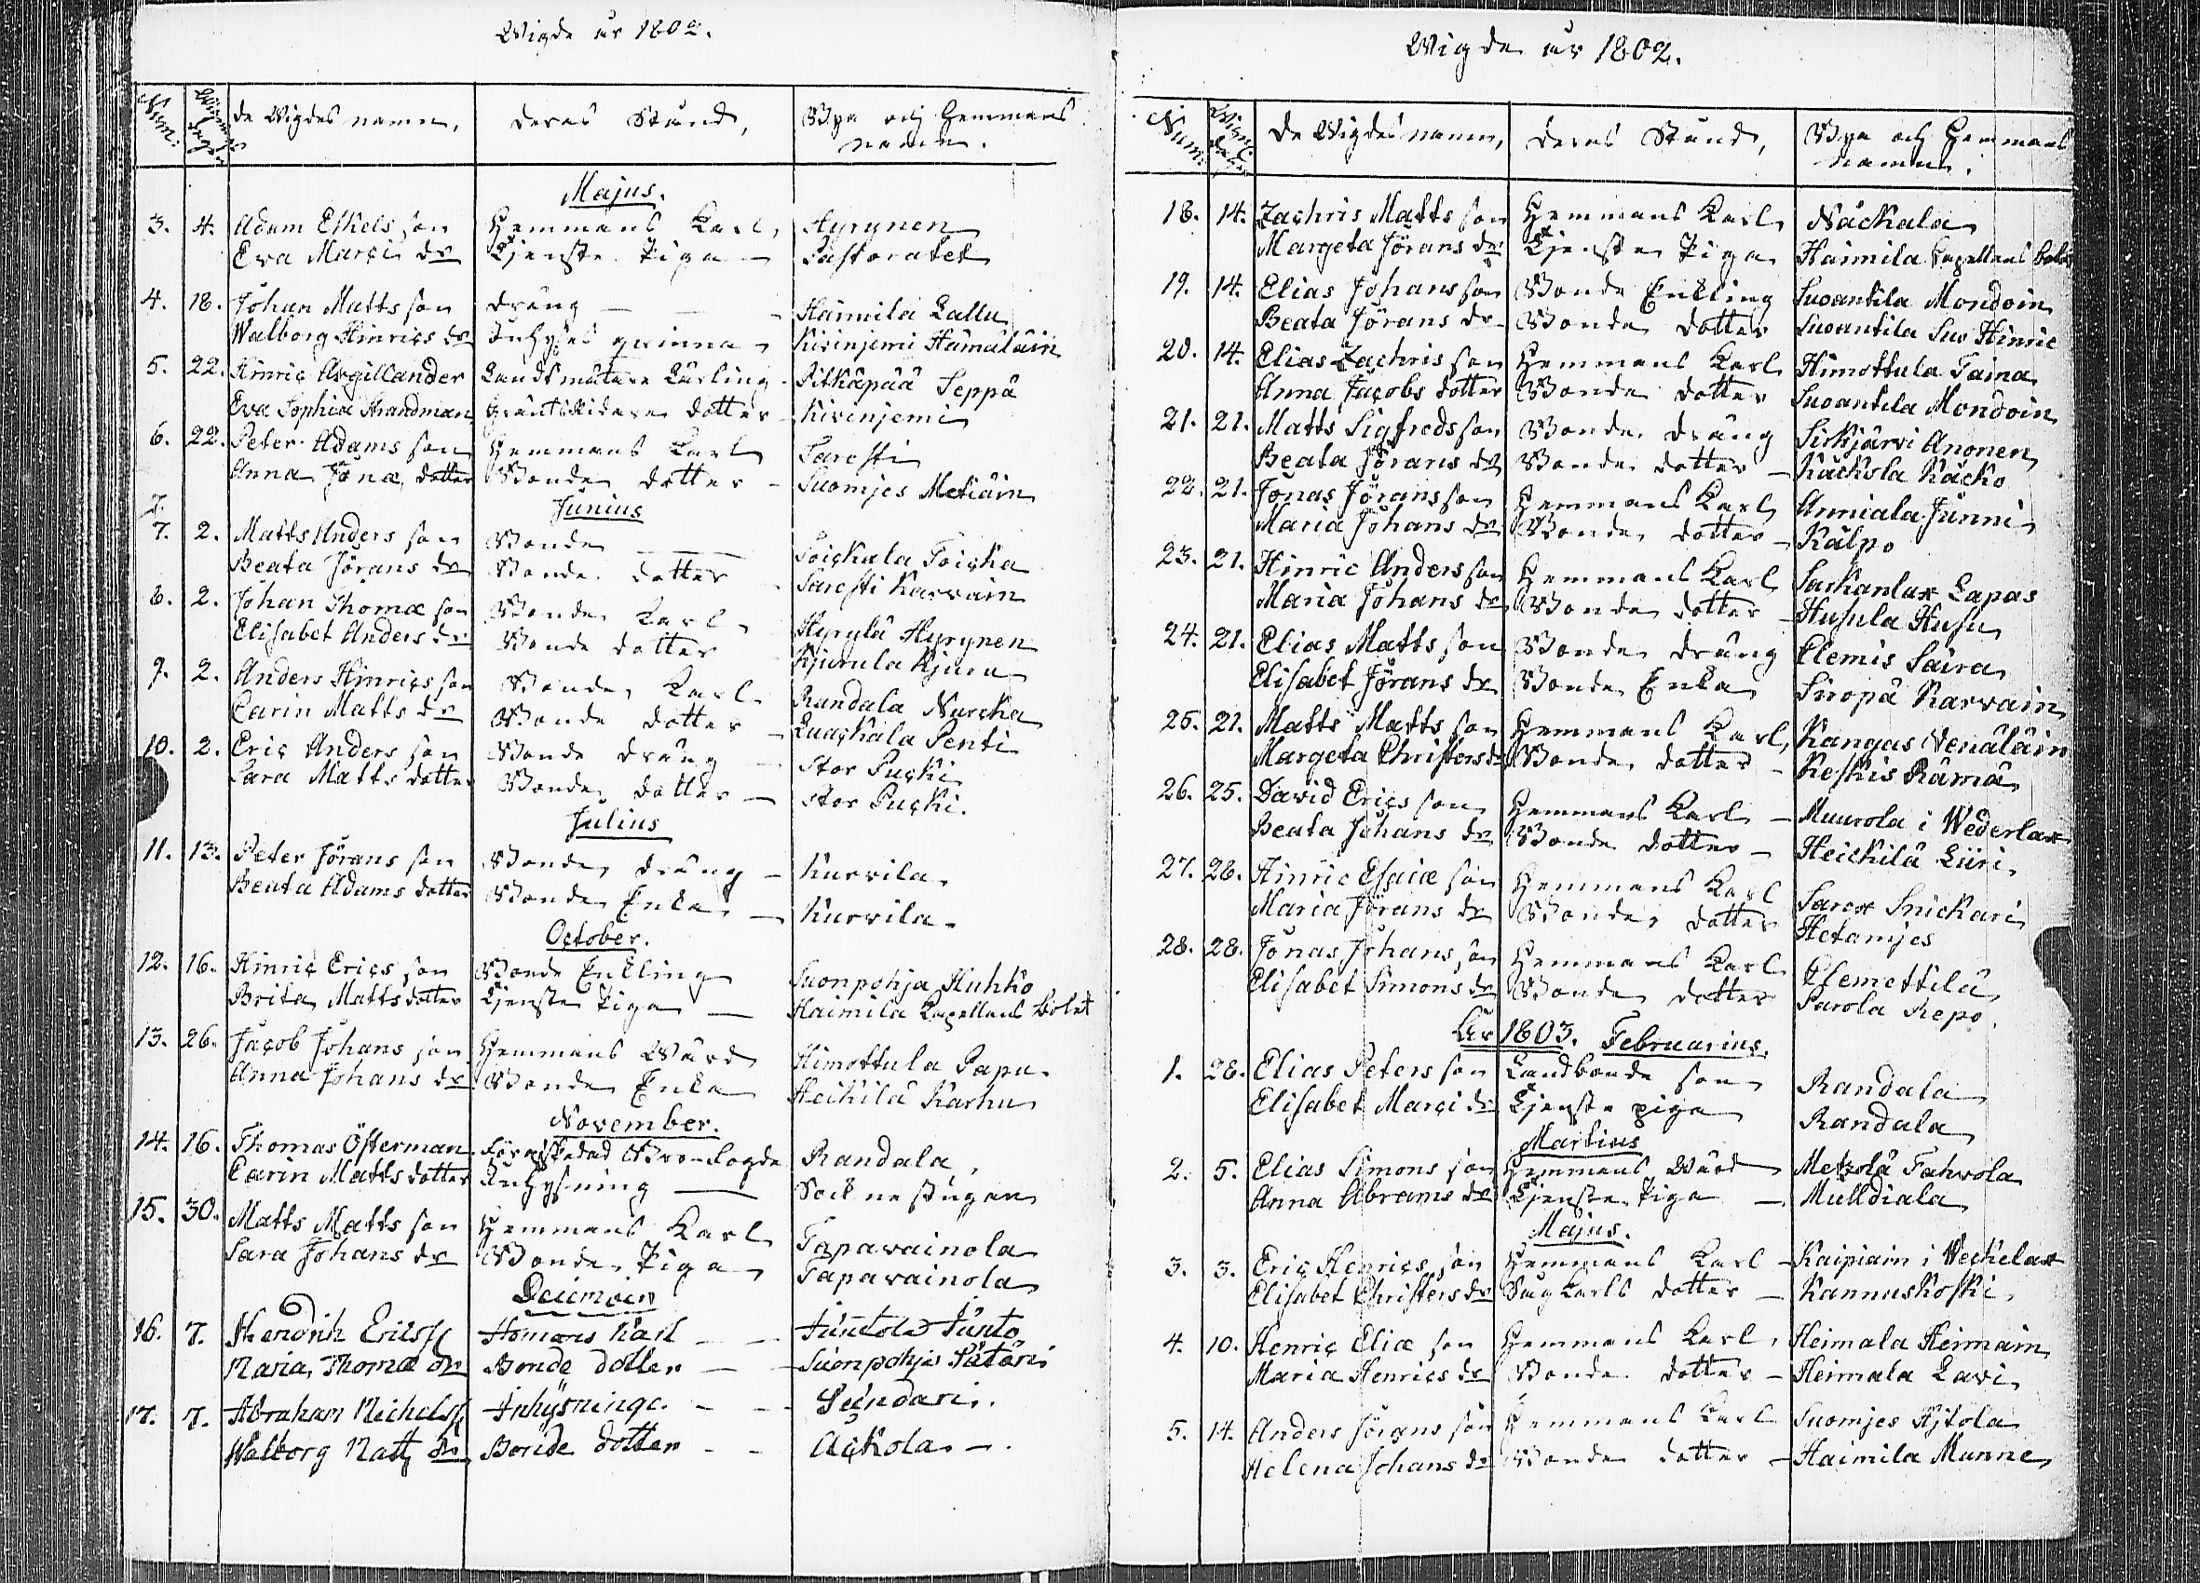 Wigde år 1802.
Num: Wigningsdagen de Wigdes namn, deras Stånd, Bya och Hemmans namn.
Majus.
3. 4. Adam Eskels son Hemmans Karl, Hyrynen
Eva Marci dr Tjenste Piga — Pastoratet
4. 18. Johan Matts son dräng — — — Haimila Lallu
Walborg Hinrics dr Inhyses qvinna — Kivinjemi Hämäläin
5. 22. Hinric Argillander Landtmätare Lärling — Pitkäpää Seppä
Eva Sophia Strandman Gränsridare dotter — Kivinjemi
6. 22. Peter Adams son Hemmans Karl Taresti
Anna Jonæ dotter Bonde dotter — Suomjes Metiäin
Junius
7. 2. Matts Anders son Bonde — Toickala Toicka
Beata Jörans dr Bonde dotter — Taresti Karvain
8. 2. Johan Thomæ son Bonde Karl — Hyrylä Hyrynen
Elisabet Anders dr Bonde dotter Kjurula Kjuru
9. 2. Anders Hinrics son Bonde Karl — Randala Nurcka
Carin Matts dr Bonde dotter — Luackala Penti
10. 2. Eric Anders son Bonde dräng — Stor Pucki
Sara Matts dotter Bonde dotter — Stor Pucki.
Julius
11. 13. Peter Jörans son Bonde dräng — Kurvila.
Beata Adams dotter Bonde Enka — Kurvila.
October.
12. 16. Hinric Erics son Bonde Enkling Suonpohja Huhko
Brita Matts dotter Tjenste Piga — Haimila Capellans Bolet
13. 26. Jacob Johans son Hemmans Wärd Himottula Papu.
Anna Johans dr Bonde Enka Heikilä Karhu
November.
14. 16. Thomas Österman Förafskedad Bro-Fogde Randala,
Carin Matts dotter Inhysning — Sockne stugan
15. 30. Matts Matts son Hemmans Karl Tapavainola
Sara Johans dr Bonde Piga Tapavainola
December
16. 7. Hendrik Erikss Hemans Karl — — Juntola Junto
Maria Thomæ dr Bonde dotter — — Suonpohja Pätäri
17. 7. Abraham Michelss Inhysninge. — — Seundari.
Walborg Matts dr Bonde dotter — — Ackola —.
Wigde år 1802.
Num: Wigningsdagen De Wigdes namn, deras Stånd, Bya och Hemmans namn.
18. 14. Zachris Matts son Hemmans Karl Näckala
Margeta Jörans dr Tjenste Piga Haimila Capellans Bolet
19. 14. Elias Johans son Bonde Enkling Suoantila Mondoin
Beata Jörans dr Bonde dotter Suoantila Suo Hinric
20. 14. Elias Zachris son Hemmans Karl Himottula Taina
Anna Jacobs dotter Bonde dotter Suoantila Mondoin
21. 21. Matts Sigfreds son Bonde dräng Sirkjärvi Anonen
Beata Jörans dr Bonde dotter — Käckola Käcko
22. 21. Jonas Jörans son Hemmans Karl Anniala Junni
Maria Johans dr Bonde dotter — Kälpo
23. 21. Hinric Anders son Hemmans Karl Sarkanlax Lapas
Maria Johans dr Bonde dotter — Husula Husu
24. 21. Elias Matts son Bonde dräng Clemis Saira
Elisabet Jörans dr Bonde Enka Siropä Karvain
25. 21. Matts Matts son Hemmans Karl, Kangas Venäläin
Margeta Christers dr Bonde dotter — Keskis Rämä
26. 25. David Erics son Hemmans Karl — Muurola i Wederlax
Beata Johans dr Bonde dotter — Heickilä Liiri
27. 28. Hinric Esaiæ son Hemmans Karl Sarox Snickari
Maria Jörans dr Bonde dotter Hetamjes
28. 28. Jonas Johans son Hemmans Karl Clemettilä
Elisabet Simons dr Bonde dotter Parola Repo.
År 1803. Februarius.
1. 28. Elias Peters son Landbonde son Randala
Elisabet Marci dr Tjenste piga Randala
Martius
2. 5. Elias Simons son Hemmans Wärd Metzolä Tahvola
Anna Abrams dr Tjenste Piga — Mulldiala
Majus.
3. 3. Eric Henrics son Hemmans Karl — Kaipiain i Weckelax
Elisabet Christers dr Sågkarls dotter — Kannuskoski
4. 10. Henric Eliæ son Hemmans Karl, Heimala Heimäin
Maria Henrics dr Bonde dotter — Heimala Lavi
5. 14. Anders Jörans son Hemmans Karl Suomjes Hjtola
Helena Johans dr Bonde dotter — Haimila Munne